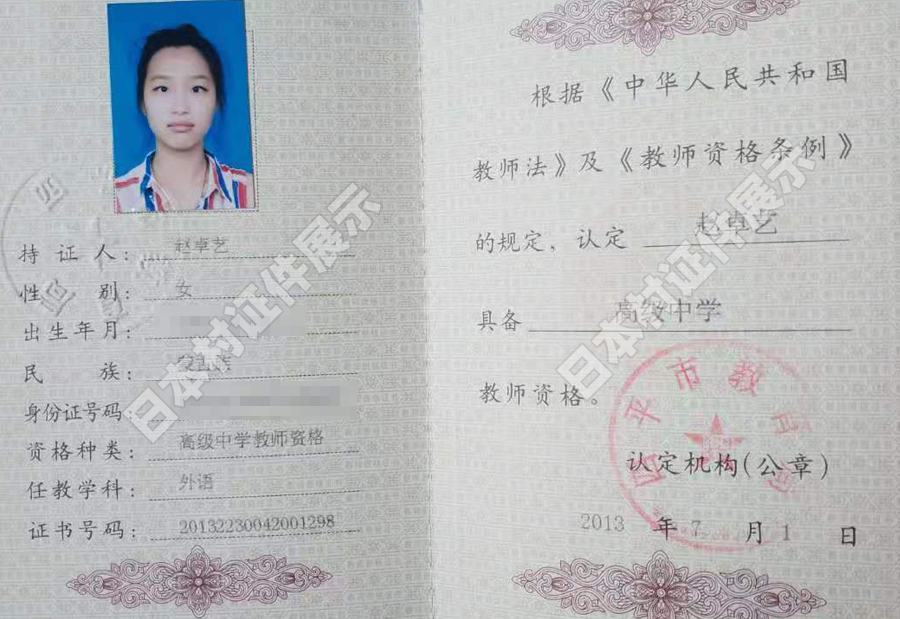 持证人：赵卓艺
性别：女
出生年月：
民族：
身份证号码：
资格种类：高级中学教师资格
任教学科：外语
证书号码：20132230042001298
根据《中华人民共和国
教师法》及《教师资格条例》
的规定，认定 赵卓艺
具备 高级中学
教师资格。
四平市教育局
认定机构(公章)
2013 年 7 月 1 日
日本村证件展示
日本村证件展示